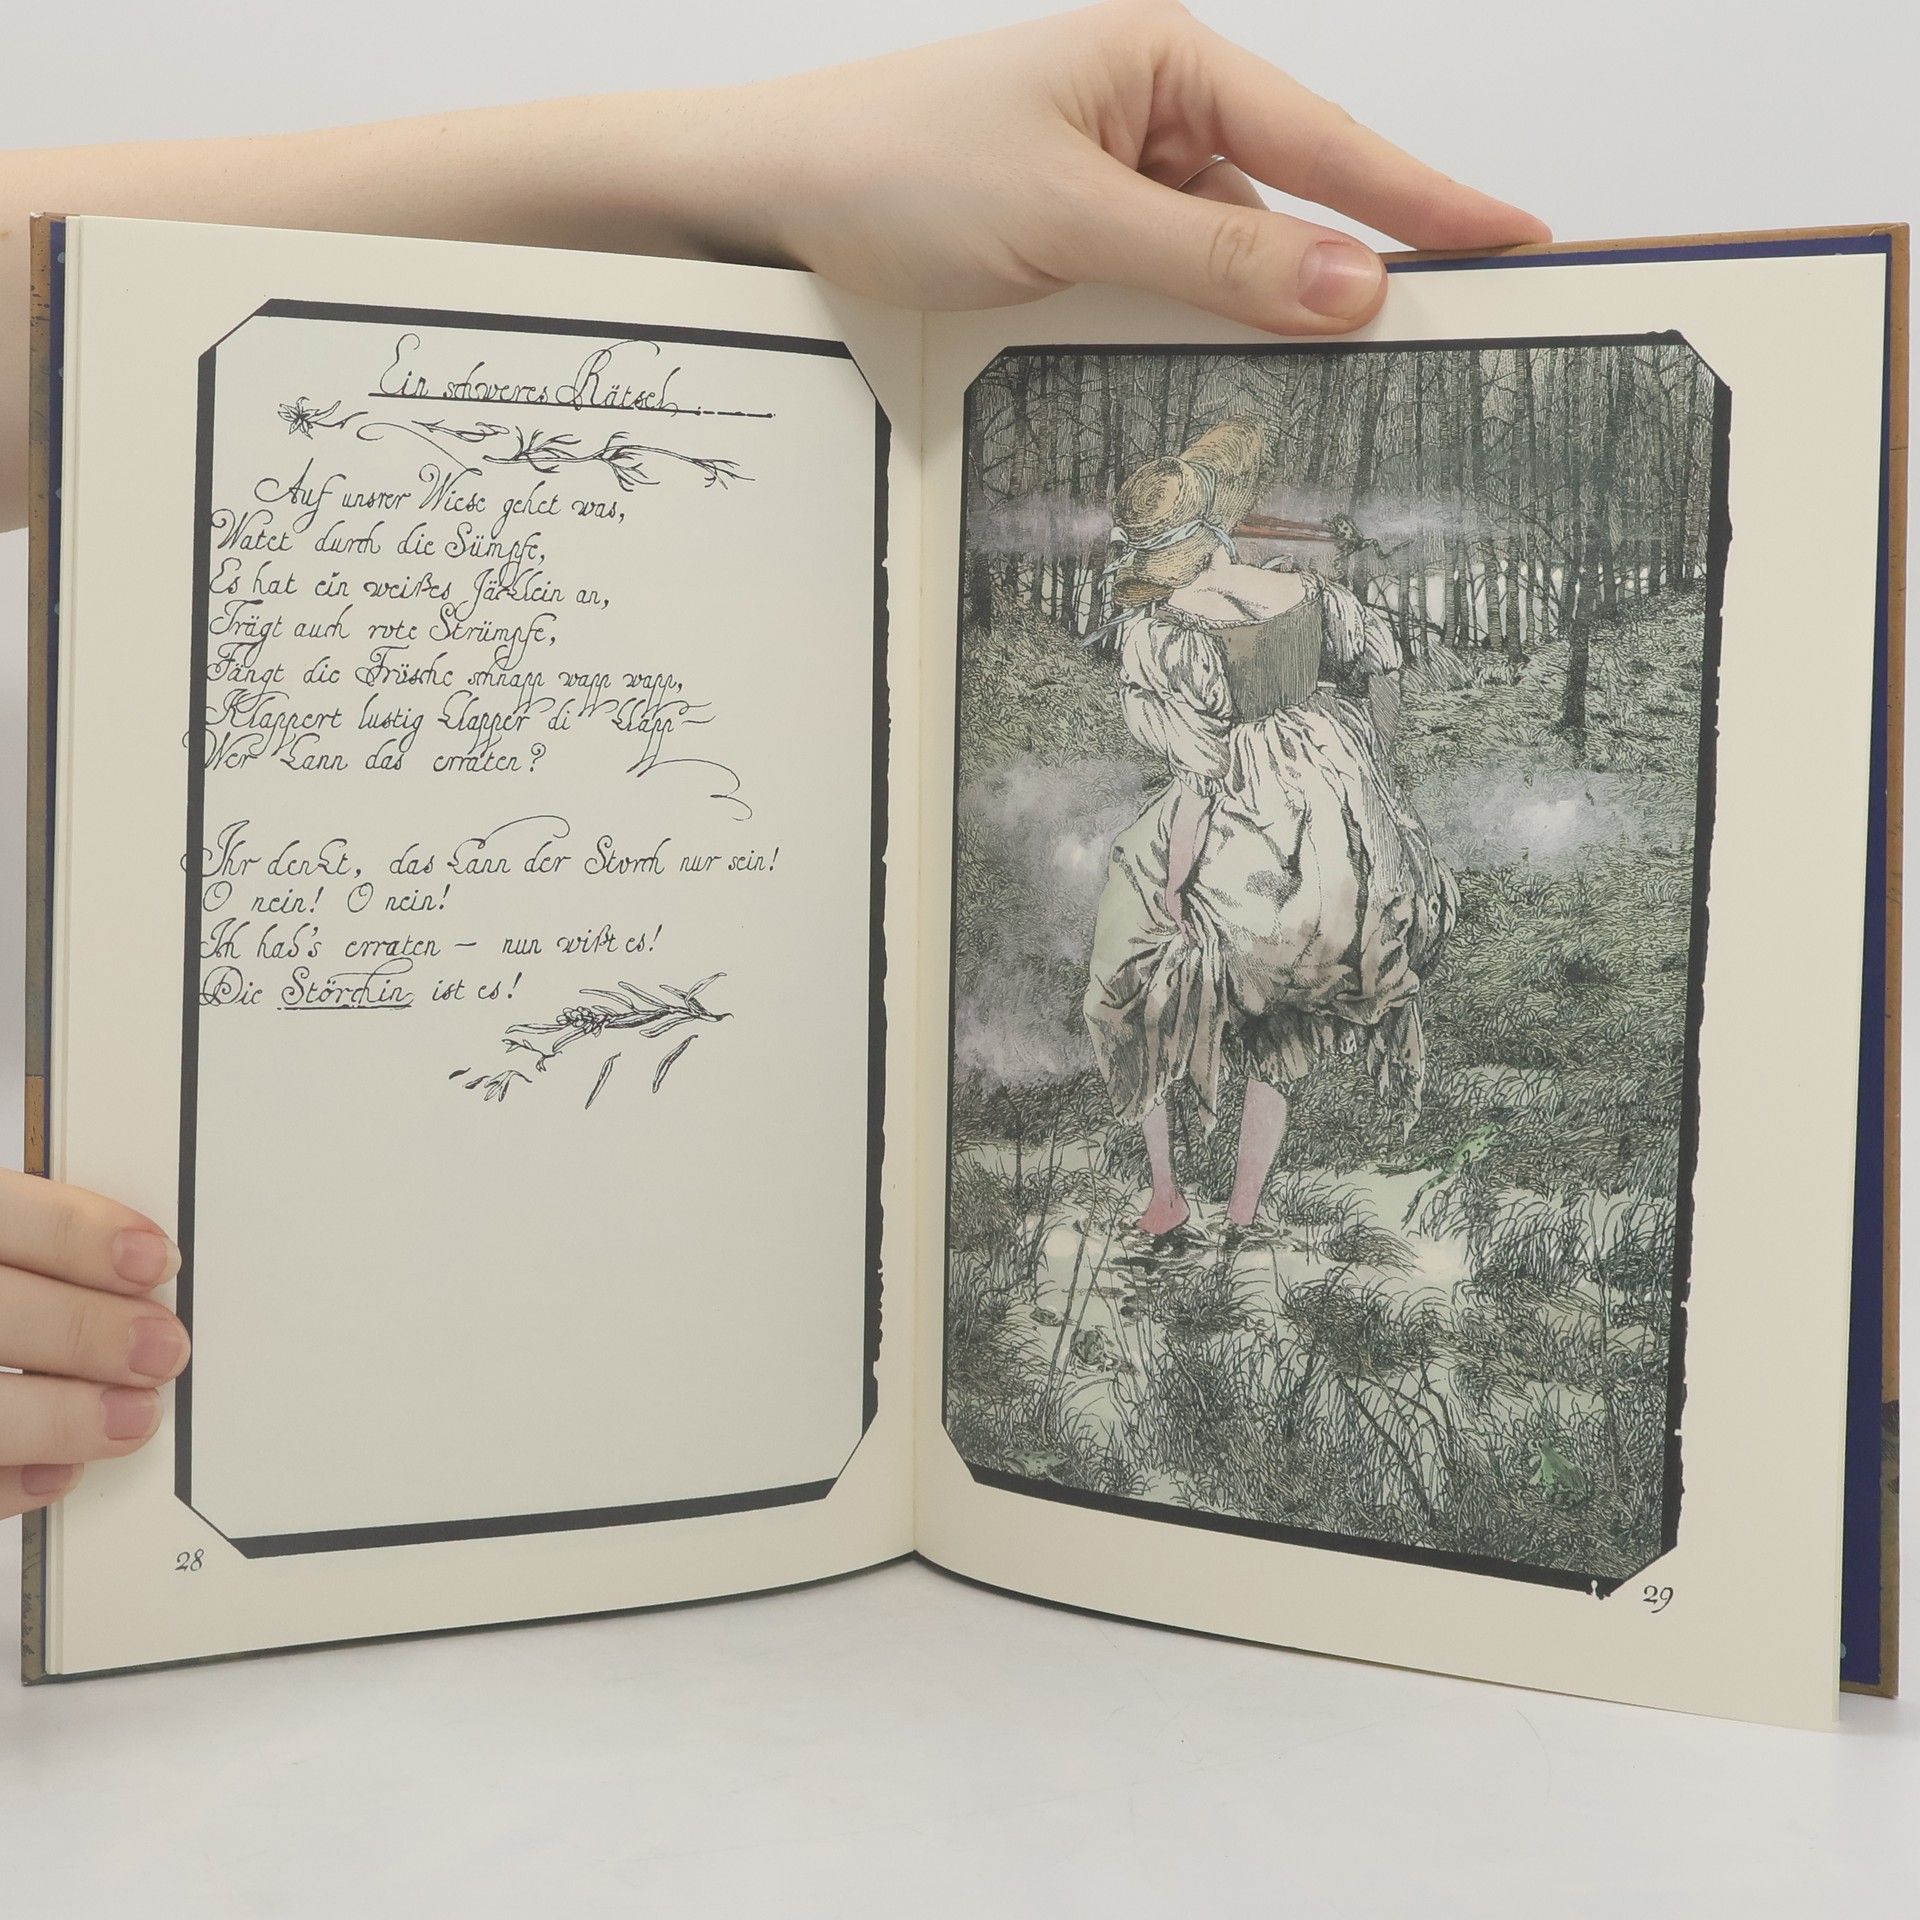 Ein schweres Rätsel.
Auf unsrer Wiese gehet was,
Watet durch die Sümpfe,
Es hat ein weißes Jäcklein an,
Trägt auch rote Strümpfe,
Fängt die Frösche schnapp wapp wapp,
Klappert lustig klapper di klapp –
Wer kann das erraten?
Ihr denkt, das kann der Storch nur sein!
O nein! O nein!
Ich hab's erraten – nun wißt es!
Die Störchin ist es!
28
29